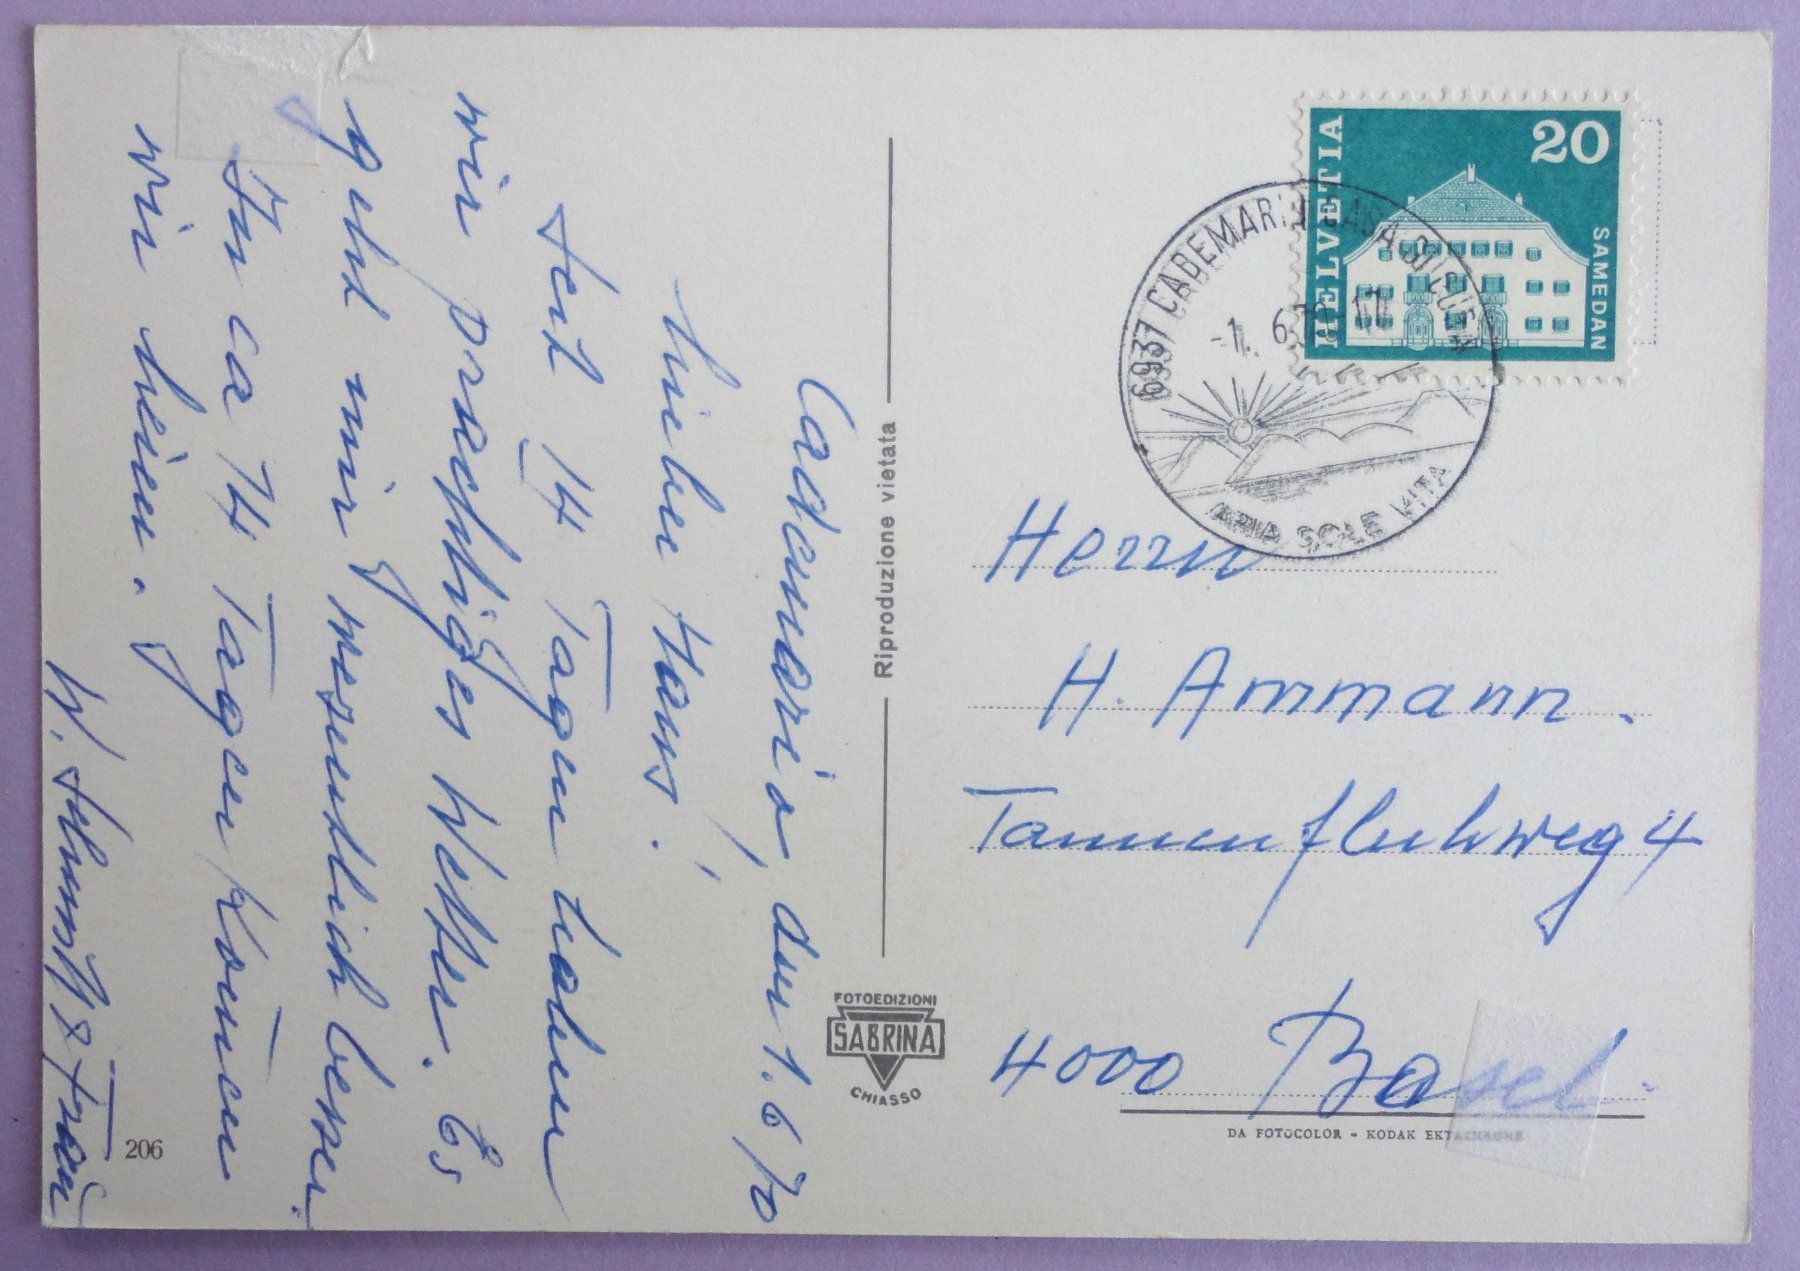 Cademario, den 1.6.70
Lieber Hans!
Seit 14 Tagen haben
wir prächtiges Wetter. Es
geht mir wesentlich besser.
In ca 14 Tagen kommen
wir heim.
W. Schmitz + Frau
206
Riproduzione vietata
FOTOEDIZIONI
SABRINA
CHIASSO
HELVETIA
20
SAMEDAN
6937 CADEMARIO CASA DI CURA
-1. 6.70-17
ARIA SOLE VITA
Herrn
H. Ammann.
Tannenfluhweg 4
4000 Basel.
DA FOTOCOLOR - KODAK EKTACHROME